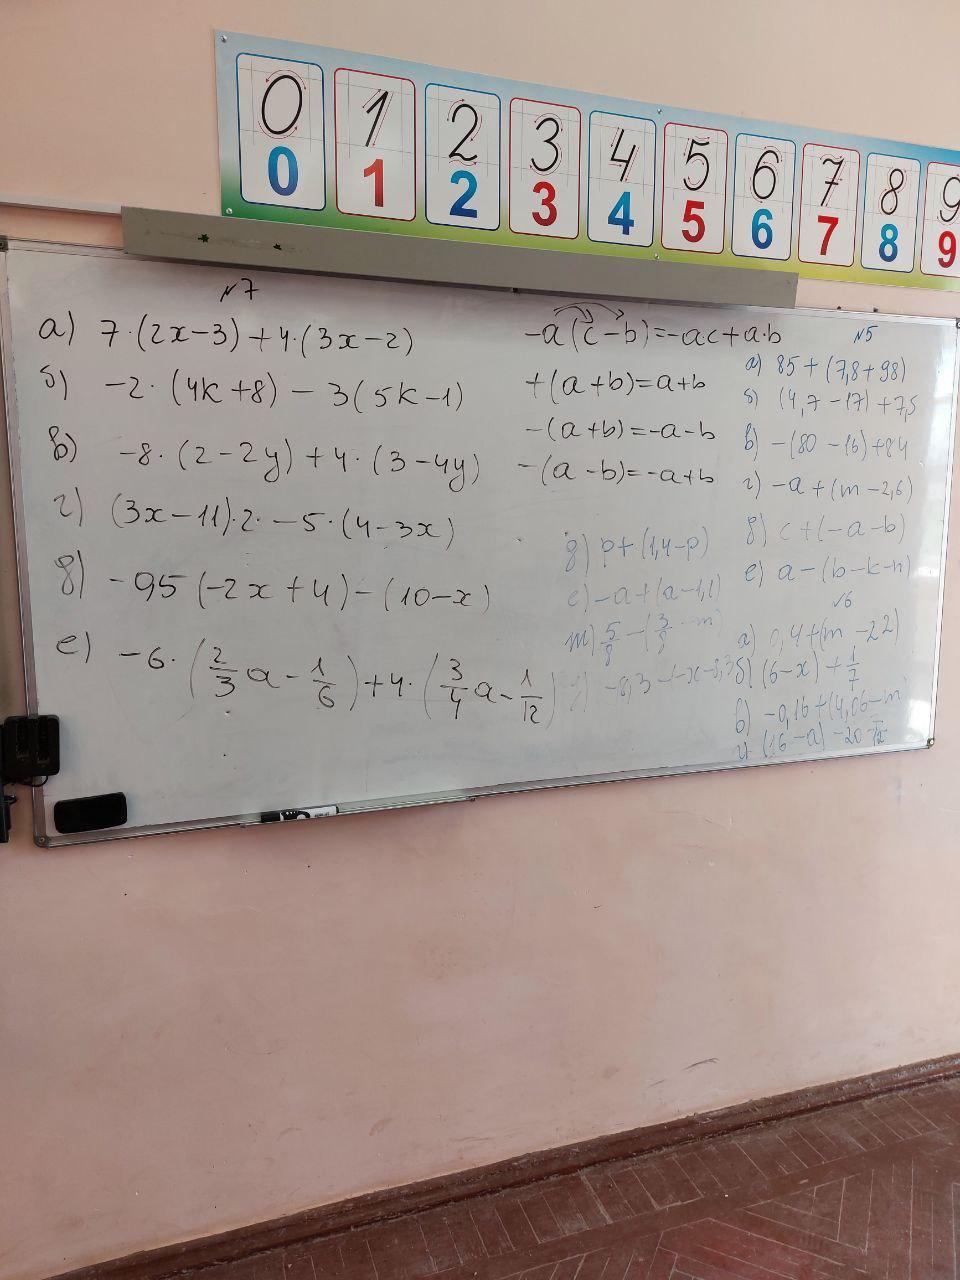 0 1 2 3 4 5 6 7 8 9
0 1 2 3 4 5 6 7 8 9
№7
а) 7·(2x−3)+4·(3x−2)
б) −2·(4k+8)−3(5k−1)
в) −8·(2−2y)+4·(3−4y)
г) (3x−11)·2·−5·(4−3x)
д) −95(−2x+4)−(10−x)
е) −6·(2/3a−1/6)+4·(3/4a−1/12)
−a(c−b)=−ac+a·b
+(a+b)=a+b
−(a+b)=−a−b
−(a−b)=−a+b
д) p+(1,4−p)
е) −a+(a−1,1)
m) 5/8−(3/8 m)
№5
а) 85+(7,8+98)
б) (4,7−17)+7,5
в) −(80−16)+84
г) −a+(m−2,6)
д) c+(−a−b)
е) a−(b−k−n)
№6
а) 0,4+(m−22)
б) (6−x)+1/7
в) −0,16+(4,06−m
(16−a)−20